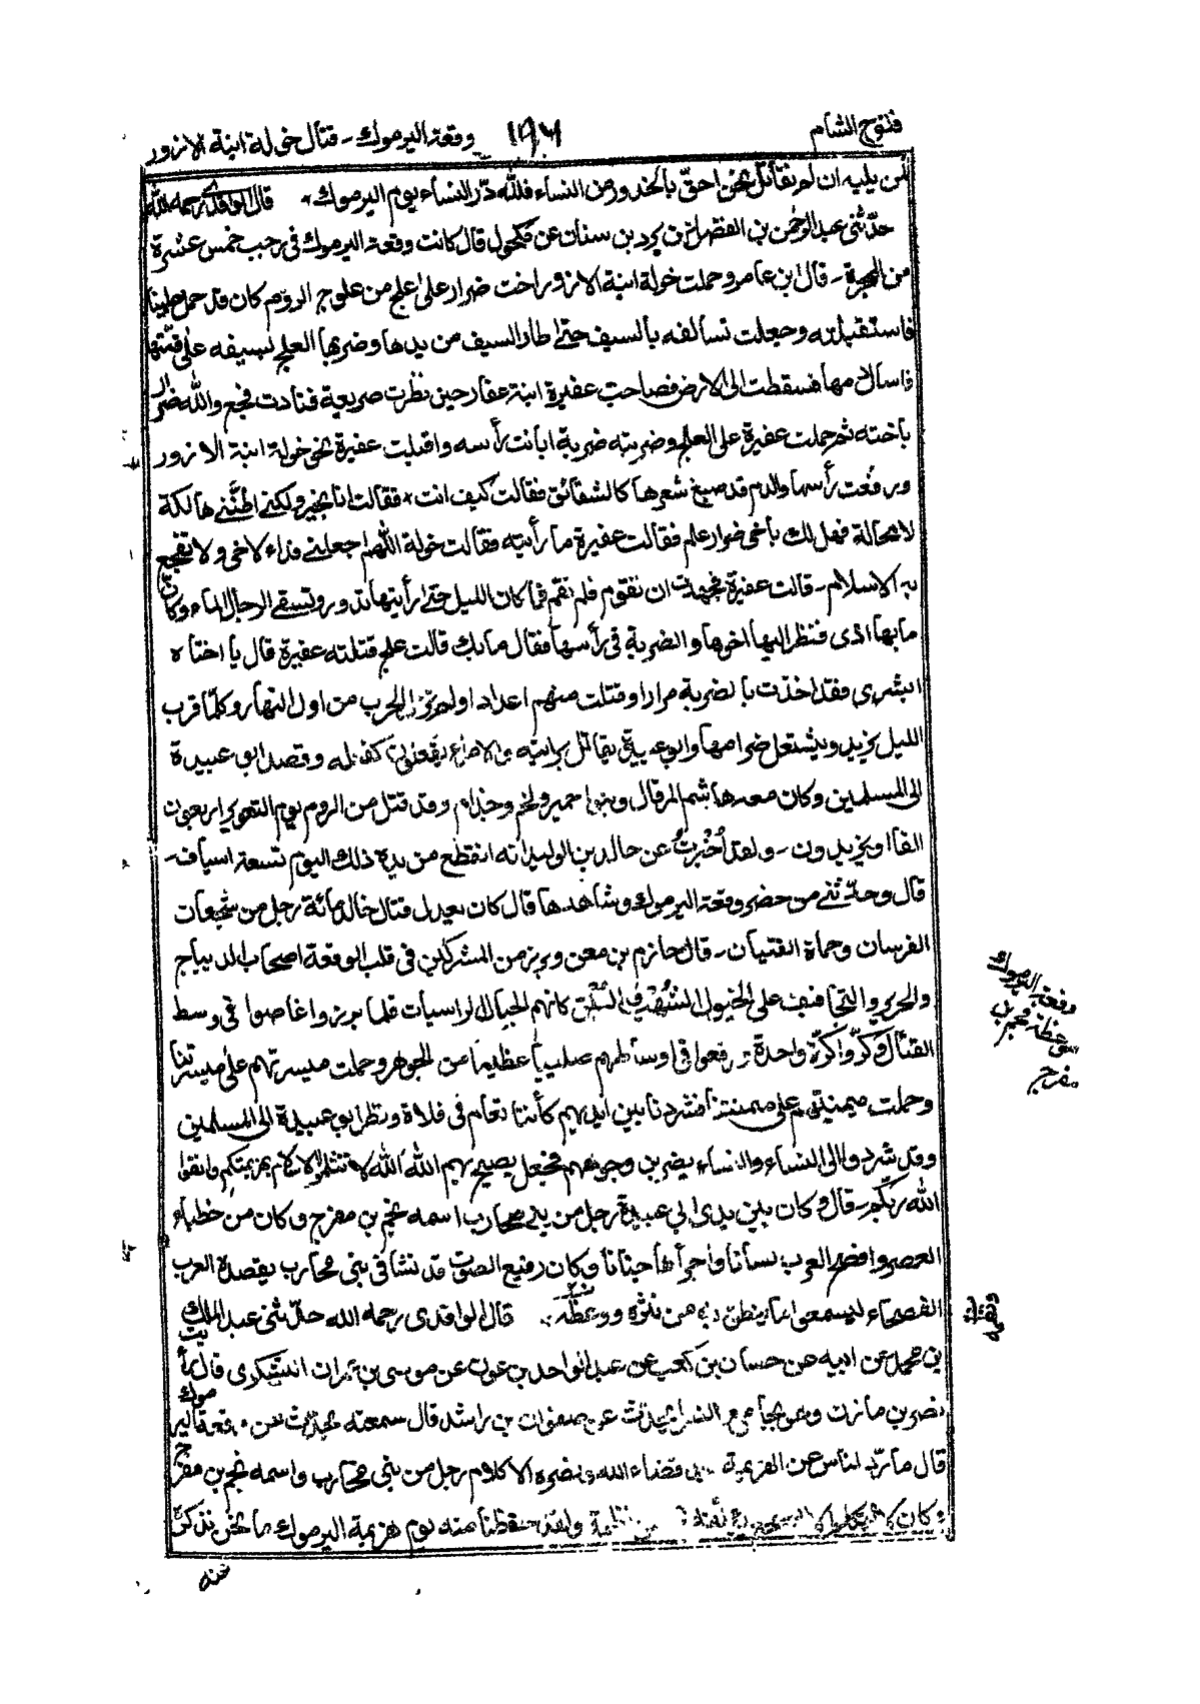 فتوح الشام
١٧٦
وقعة اليرموك - قتال خولة ابنة الازور
لمن يليه ان لم نقاتل نحن احق بالخدور من النساء فلله در النساء يوم اليرموك قال الواقدي رحمه الله
حدّثنى عبد الرحمن بن الفضل بن يزيد بن سنان عن مكحول قال كانت وقعة اليرموك فى رجب خمس عشرة
من الهجرة - قال ابن عامر وحملت خولة ابنة الازور اخت ضرار على علج من علوج الروم كان قد حمل علينا
فاستقبلته وجعلت تسالفه بالسيف حتى طار السيف من يدها وضربها العلج بسيفه على قمتها
فاسال دمها فسقطت الى الارض فصاحت عفيرة ابنة عفار حين نظرت صريعة فنادت فجع والله ضرار
باخته ثم حملت عفيرة على العلج وضربته ضربة ابانت رأسه واقبلت عفيرة نحو خولة ابنة الازور
ورفعت رأسها والدم قد صبغ شعرها كالشقائق فقالت كيف انت فقالت انا بخير ولكنى اظنّنى هالكة
لا محالة فهل لك باخى ضرار علم فقالت عفيرة ما رأيته فقالت خولة اللهم اجعلنى فداء لاخى ولا تفجع
به الاسلام - قالت عفيرة فجهدت ان تقوم فلم تقم فما كان الليل حتى رأيتها تدور وتسقى الرجال الماء وكان
ما بها اذى فنظر اليها اخوها والضربة فى رأسها فقال ما بك قالت علج قتلته عفيرة قال يا اختاه
ابشرى فقد اخذت بالضربة مرارا وقتلت منهم اعدادا ولم تزل الحرب من اول النهار وكلما قرب
الليل يزيد ويشتعل ضرامها وابو عبيدة يقاتل برايته وقصد ابو عبيدة
الى المسلمين وكان معه هاشم المرقال وبنو حمير ولخم وجذام وقد قتل من الروم يوم التعوير اربعون
الفا او يزيدون - ولقد أخبرت عن خالد بن الوليد انه انقطع من يده ذلك اليوم تسعة اسياف -
قال وحدّثنى من حضر وقعة اليرموك وشاهدها قال كان يعدل قتال خالد مائة رجل من شجعان
الفرسان وحماة الفتيان - قال حازم بن معن وبرز من المشركين فى قلب الوقعة اصحاب الديباج
والحرير والتجافيف على الخيول الشهب كانهم الجبال الراسيات فلما برزوا غاصوا فى وسط
القتال وكرّوا كرّة واحدة ورفعوا فى اوساطهم صليبا عظيما من الجوهر وحملت ميسرتهم على ميسرتنا
وحملت ميمنتهم على ميمنتنا فشردنا بين ايديهم كأننا نعام فى فلاة ونظر ابو عبيدة الى المسلمين
وقد شردوا الى النساء والنساء يضربن وجوههم فجعل يصيح بهم الله الله لا تثلموا الاسلام بهزيمتكم واتقوا
الله ربكم - قال وكان بين يدى ابى عبيدة رجل من بنى محارب اسمه نجم بن مفرج وكان من خطباء
العصر وافصح العرب لسانا واجرأها جنانا وكان رفيع الصوت قد نشأ فى بنى محارب يقصده العرب
الفصحاء ليسمعوا ما ينطق به من نثره ووعظه قال الواقدى رحمه الله حدّثنى عبد الملك
بن محمد عن ابيه عن حسان بن كعب عن عبد الواحد بن عون عن موسى بن عمران اليشكرى قال رأيت
نصر بن مازن وهو بجامع يحدّث عن صفوان بن راشد قال سمعته يحدّث عن وقعة اليرموك
قال ما ردّ الناس عن الهزيمة بعد قضاء الله ونصره الا كلام رجل من بنى محارب واسمه نجم بن مفرج
وكان ولقد حفظنا منه يوم هزيمة اليرموك ما نحن نذكره
وقعة اليرموك
موعظة نجم بن
مفرج